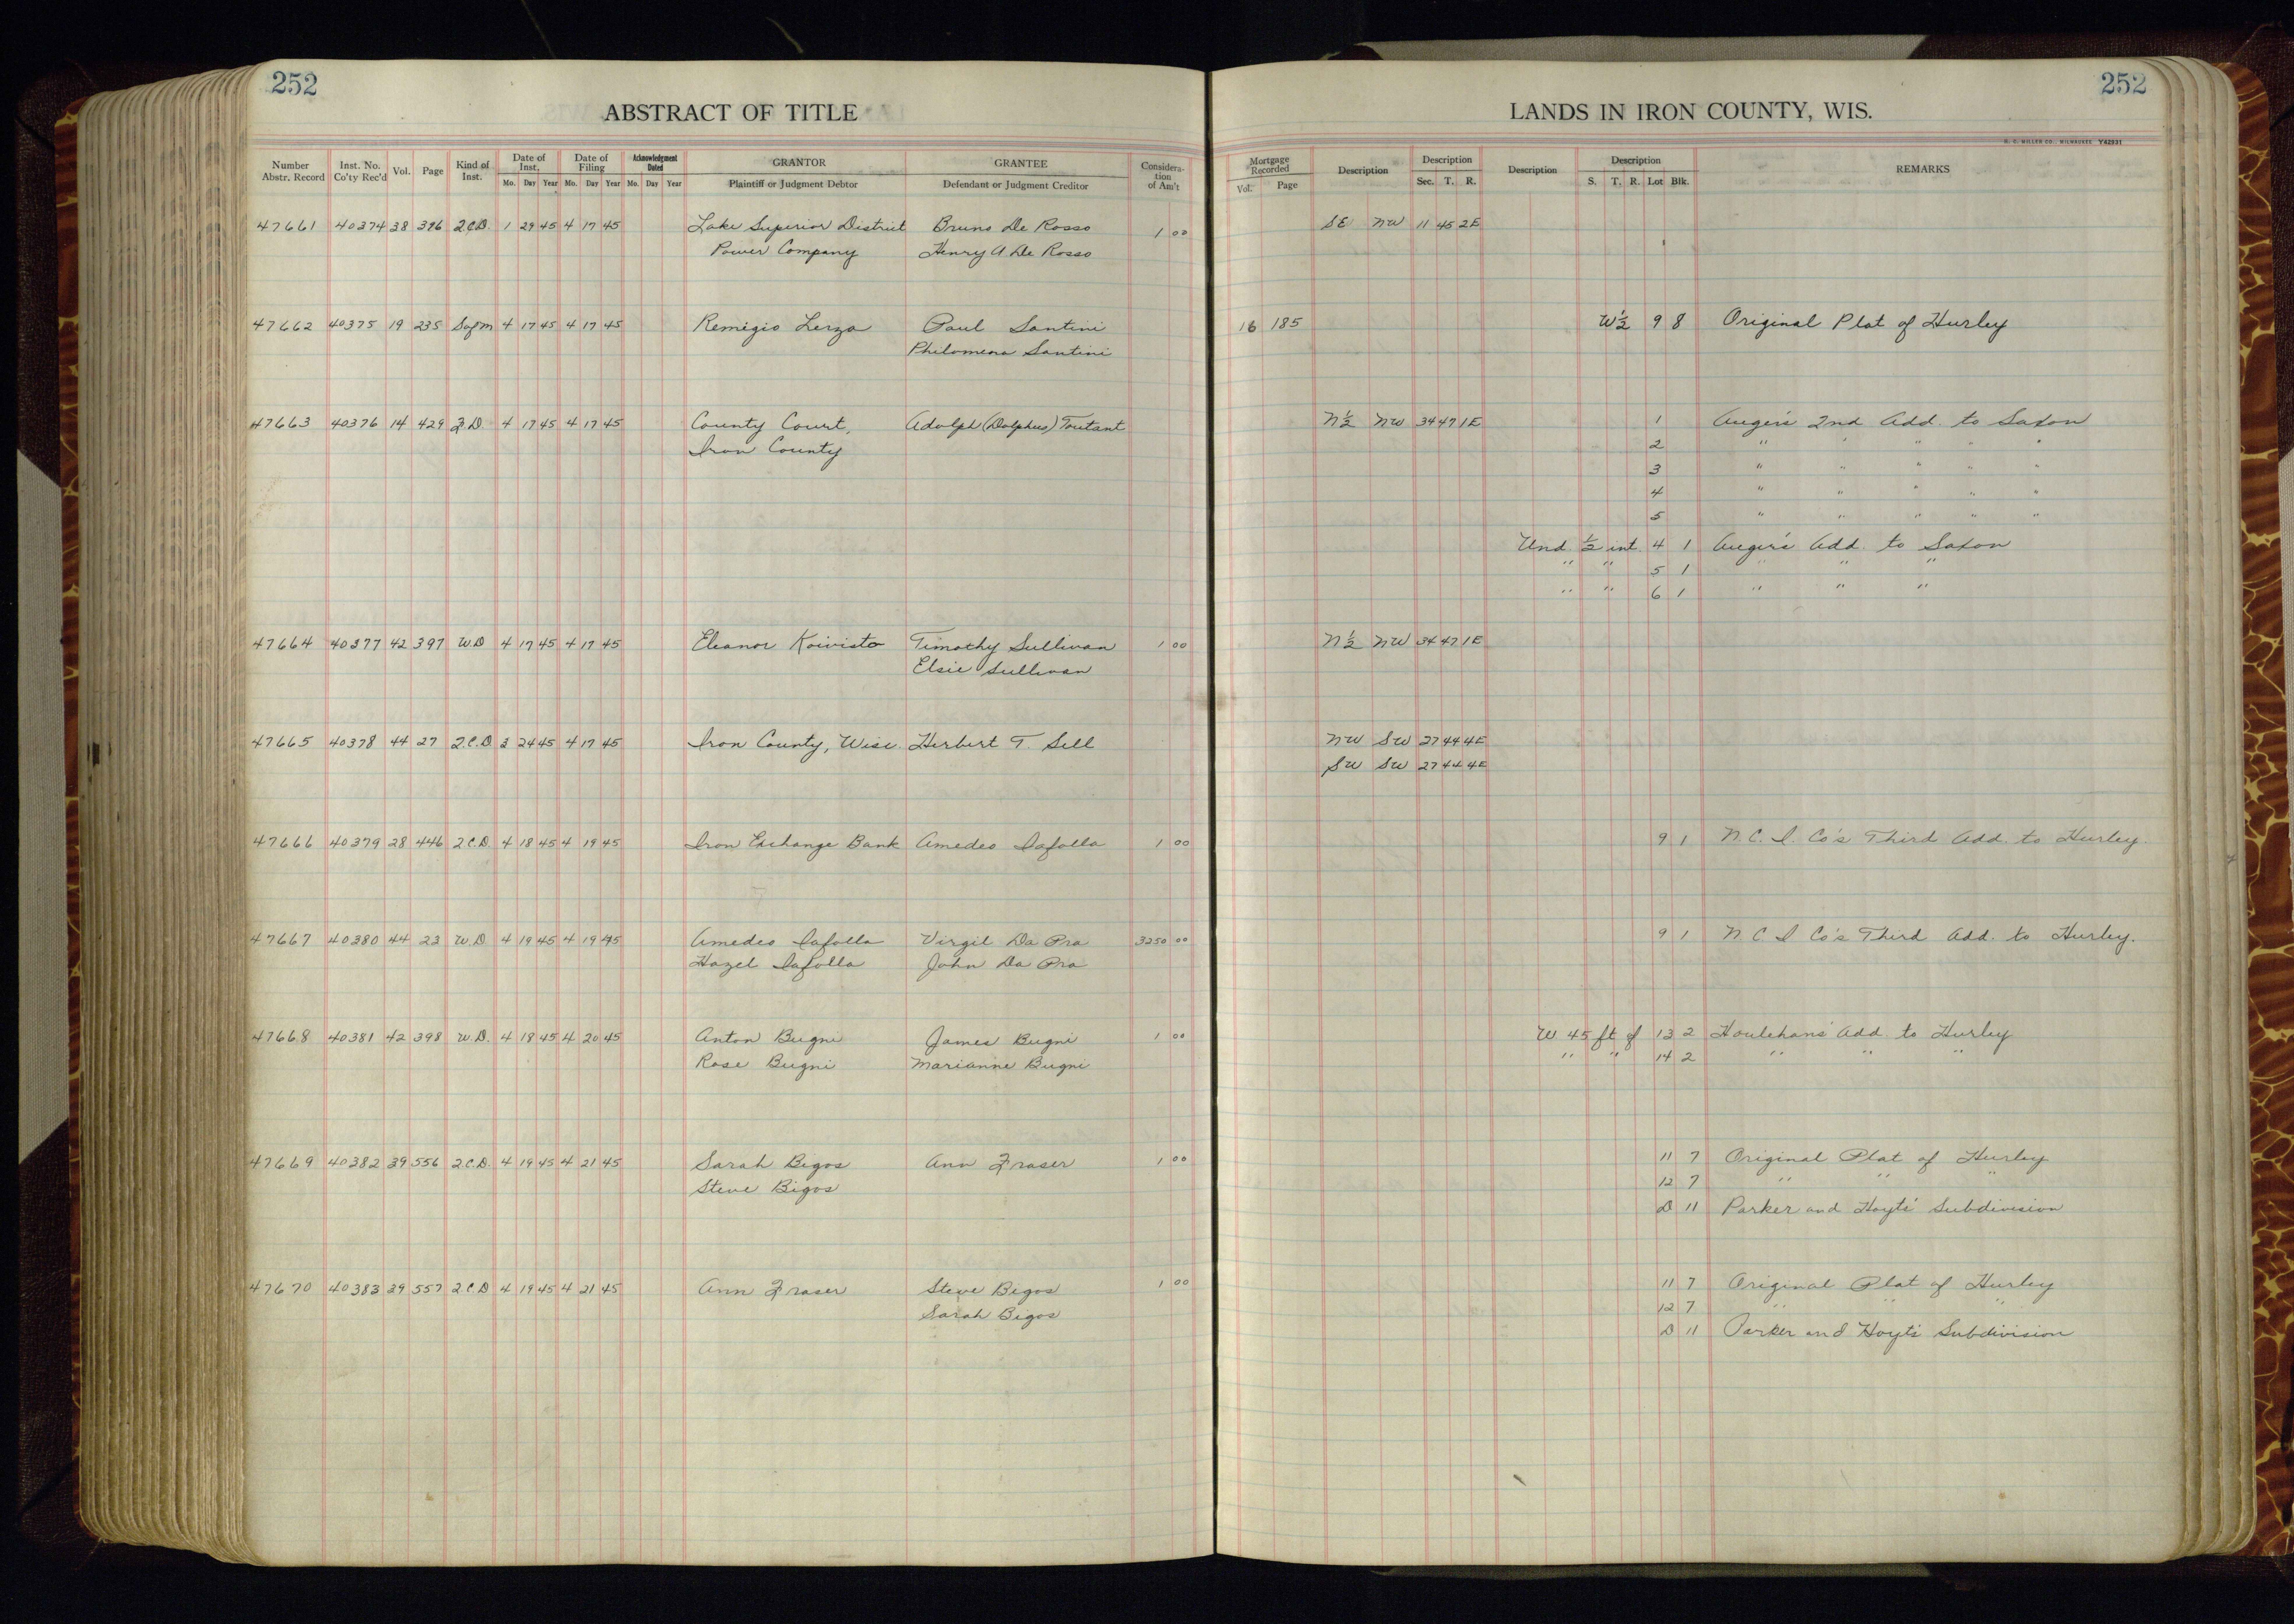 252
ABSTRACT OF TITLE
Number Abstr. Record Inst. No. Co'ty Rec'd Vol. Page Kind of Inst. Date of Inst. Mo. Day Year Date of Filing Mo. Day Year Acknowledgment Dated Mo. Day Year GRANTOR Plaintiff or Judgment Debtor GRANTEE Defendant or Judgment Creditor Considera-tion of Am't
252
LANDS IN IRON COUNTY, WIS.
H. C. MILLER CO., MILWAUKEE Y42931
Mortgage Recorded Vol. Page Description Description Sec. T. R. Description Description S. T. R. Lot Blk. REMARKS
47661 40374 38 396 Q.C.D. 1 29 45 4 17 45 Lake Superior District Bruno De Rosso 1 00 SE NW 11 45 2E
Power Company Henry A De Rosso
47662 40375 19 235 Sofm 4 17 45 4 17 45 Remigio Lerza Paul Santini 16 185 W½ 9 8 Original Plat of Hurley
Philomena Santini
47663 40376 14 429 F.D. 4 17 45 4 17 45 County Court, Adolph (Dolphus) Toutant N½ NW 34 47 1E 1 Auger's 2nd Add. to Saxon
Iron County 2 " " " " "
3 " " " " "
4 " " " " "
5 " " " " "
Und. ½ int. 4 1 Auger's Add. to Saxon
" " 5 1 " " "
" " 6 1 " " "
47664 40377 42 397 W.D 4 17 45 4 17 45 Eleanor Koivisto Timothy Sullivan 1 00 N½ NW 34 47 1E
Elsie Sullivan
47665 40378 44 27 Q.C.D. 3 24 45 4 17 45 Iron County, Wisc. Herbert T. Sell NW SW 27 44 4E
SW SW 27 44 4E
47666 40379 28 446 Q.C.D. 4 18 45 4 19 45 Iron Exchange Bank Amedeo Iafolla 1 00 9 1 N.C.I. Co's Third Add. to Hurley.
47667 40380 44 23 W.D 4 19 45 4 19 45 Amedeo Iafolla Virgil Da Pra 3250 00 9 1 N.C.I Co's Third Add. to Hurley.
Hazel Iafolla John Da Pra
47668 40381 42 398 W.D. 4 18 45 4 20 45 Anton Bugni James Bugni 1 00 W 45 ft of 13 2 Houlehans' Add. to Hurley
Rose Bugni Marianne Bugni " " 14 2 " " "
47669 40382 39 556 Q.C.D. 4 19 45 4 21 45 Sarah Bigos Ann Fraser 1 00 11 7 Original Plat of Hurley
Steve Bigos 12 7 " " "
D 11 Parker and Hoyts' Subdivision
47670 40383 39 557 Q.C.D 4 19 45 4 21 45 Ann Fraser Steve Bigos 1 00 11 7 Original Plat of Hurley
Sarah Bigos 12 7 " " "
D 11 Parker and Hoyt's Subdivision